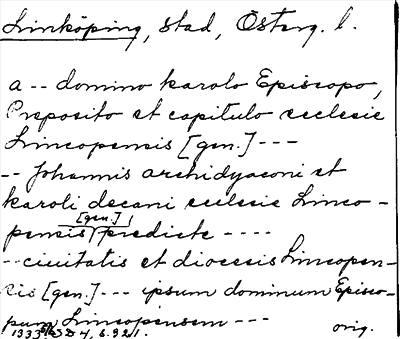 Linköping, stad, Österg. l.
a -- domino karolo Episcopo,
Preposito et capitulo ecclesie
Lincopensis [gen.] ---
-- Johannis archidyaconi et
karoli decani ecclesie Linco-
[gen.]
pensis predicte ----
-- ciuitatis et diocesis Lincopen-
sis [gen.] --- ipsum dominum Episco-
pum Lincopensem ---
1333 4, s. 321. orig.